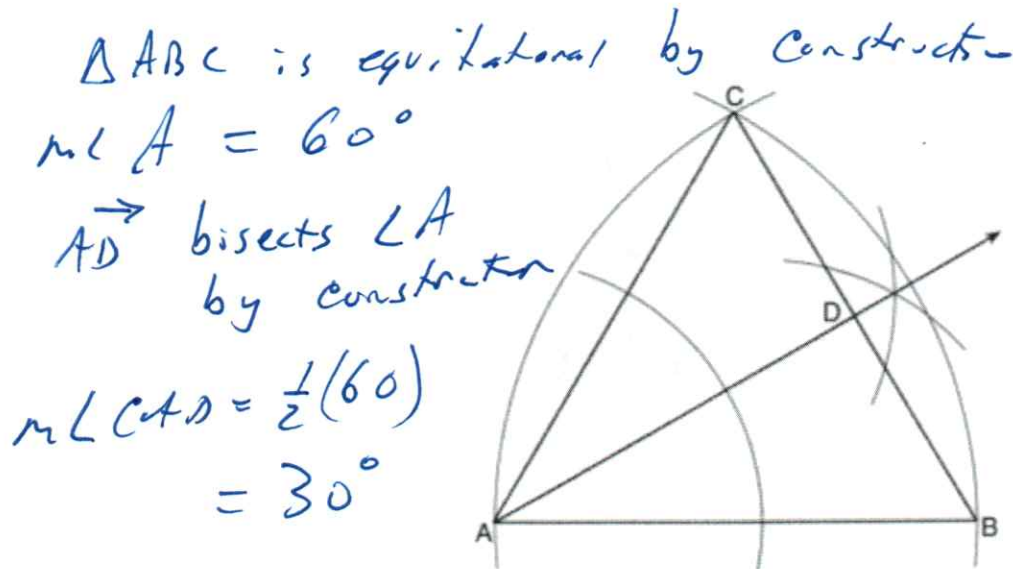 Δ ABC is equilateral by Construction
m∠ A = 60°
AD→ bisects ∠A
by construction
m∠CAD = 1/2(60)
= 30°
C
D
A
B